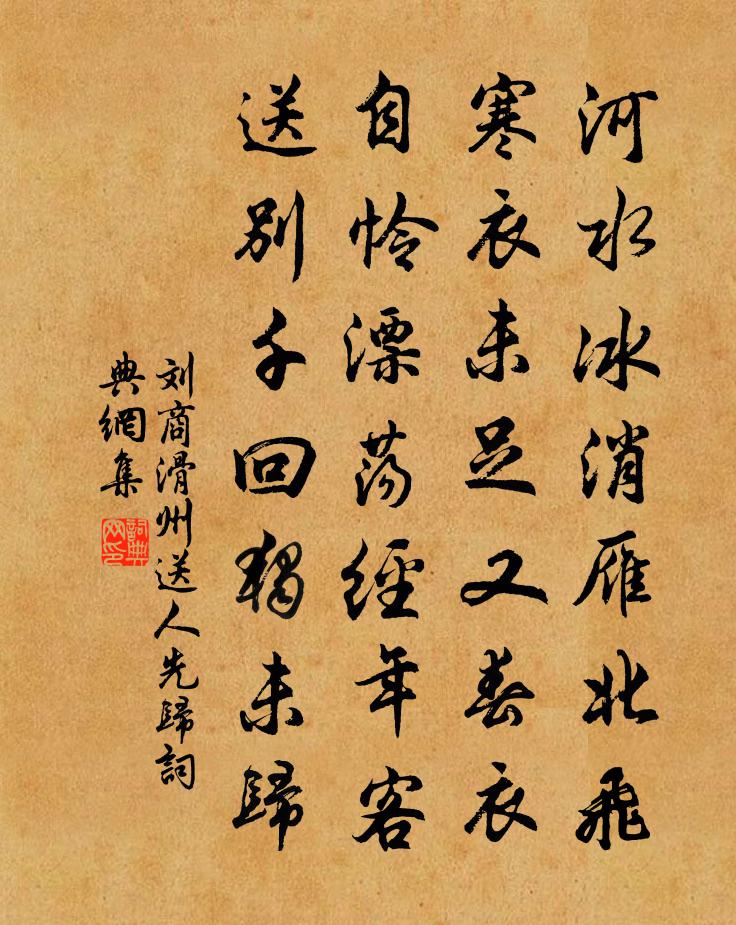 河水冰消雁北飛
寒衣未足又春衣
自怜漂荡經年客
送别千回獨未歸
刘商滑州送人先歸詞
典網集
詞典网印